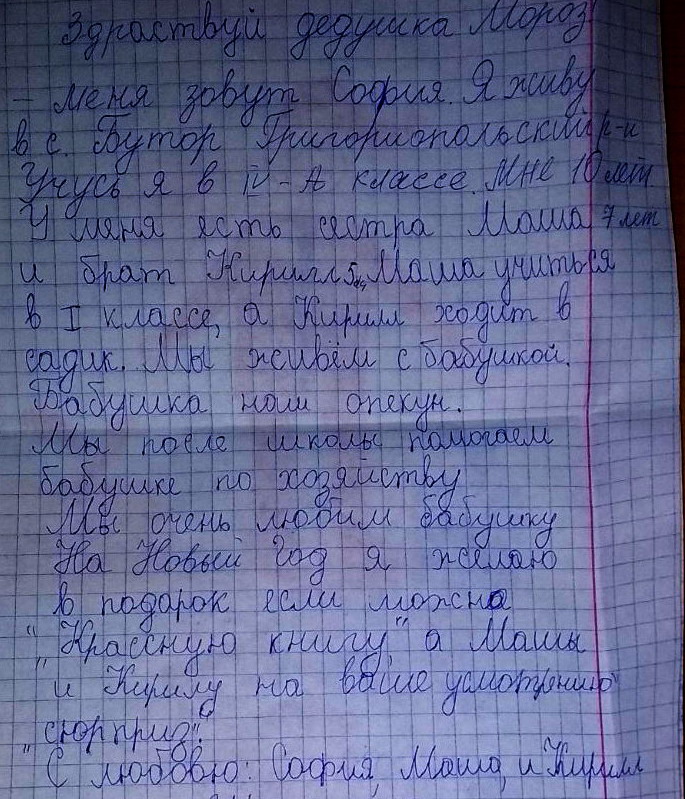 Здраствуй дедушка Мороз
– меня зовут София. Я живу
в с. Бутор Григориопольский р-н
Учусь я в IV-А классе. Мне 10 лет.
У меня есть сестра Маша 7 лет
и брат Кирилл 5 Маша учиться
в I классе, а Кирилл ходит в
садик. Мы живём с бабушкой.
Бабушка наш опекун.
Мы после школы помогаем
бабушке по хозяйству
Мы очень любим бабушку
На Новый год я желаю
в подарок если можно
„Крассную книгу" а Машы
и Кирилу на ваше усмотрению
„сюрприз".
С любовю: София, Маша, и Кирилл